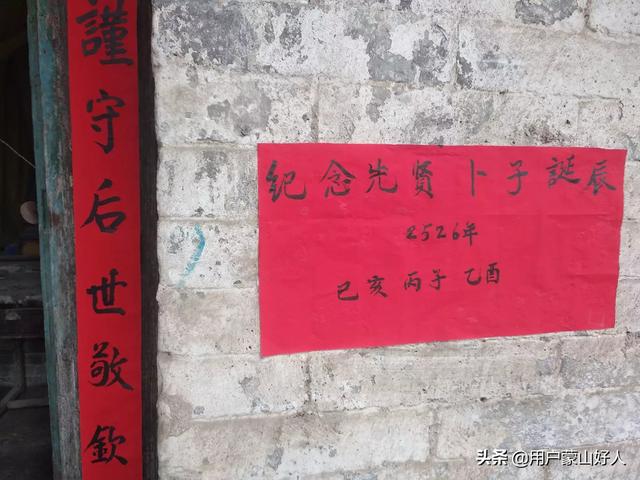 謹守后世敬欽
紀念先贤卜子誕辰
2526年
已亥 丙子 乙酉
头条 @用户蒙山好人